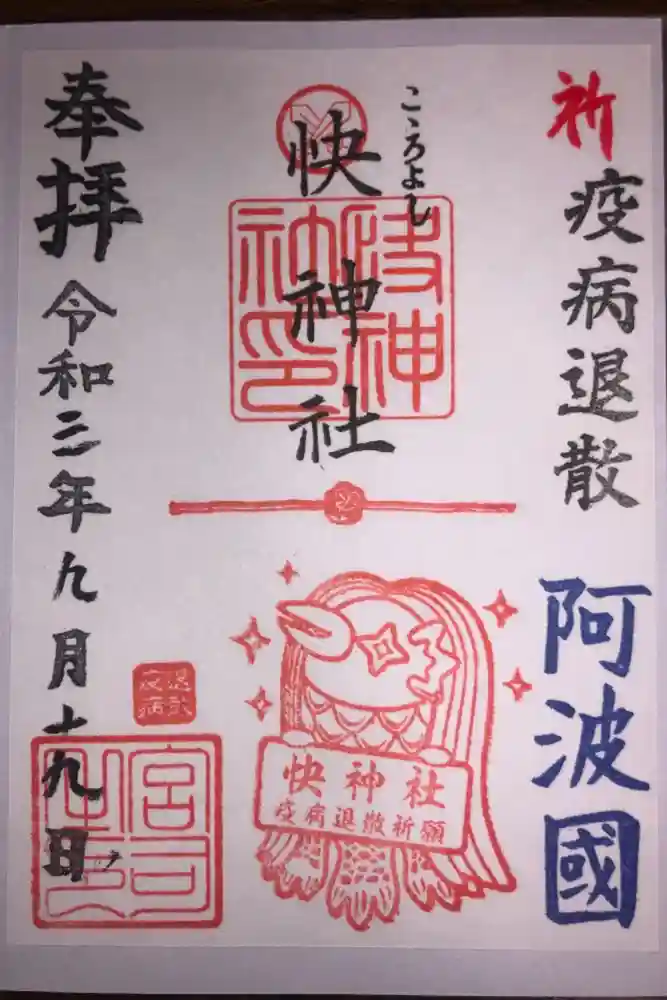 祈疫病退散
阿波國
こころよし
快神社
快神社
疫病退散祈願
奉拝
令和三年九月十九日
退散
疫病
宮司
之印